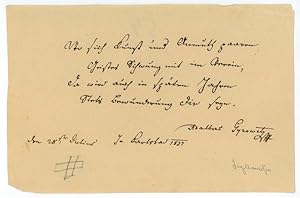 Wo sich Kunst und Anmuth paaren
Geistes Schwung mit im Verein,
Da wird auch in späten Jahren
Stets Bewunderung Dir seyn.
Adalbert Gyrowetz
den 28ten Julius In Carlsbad 1837